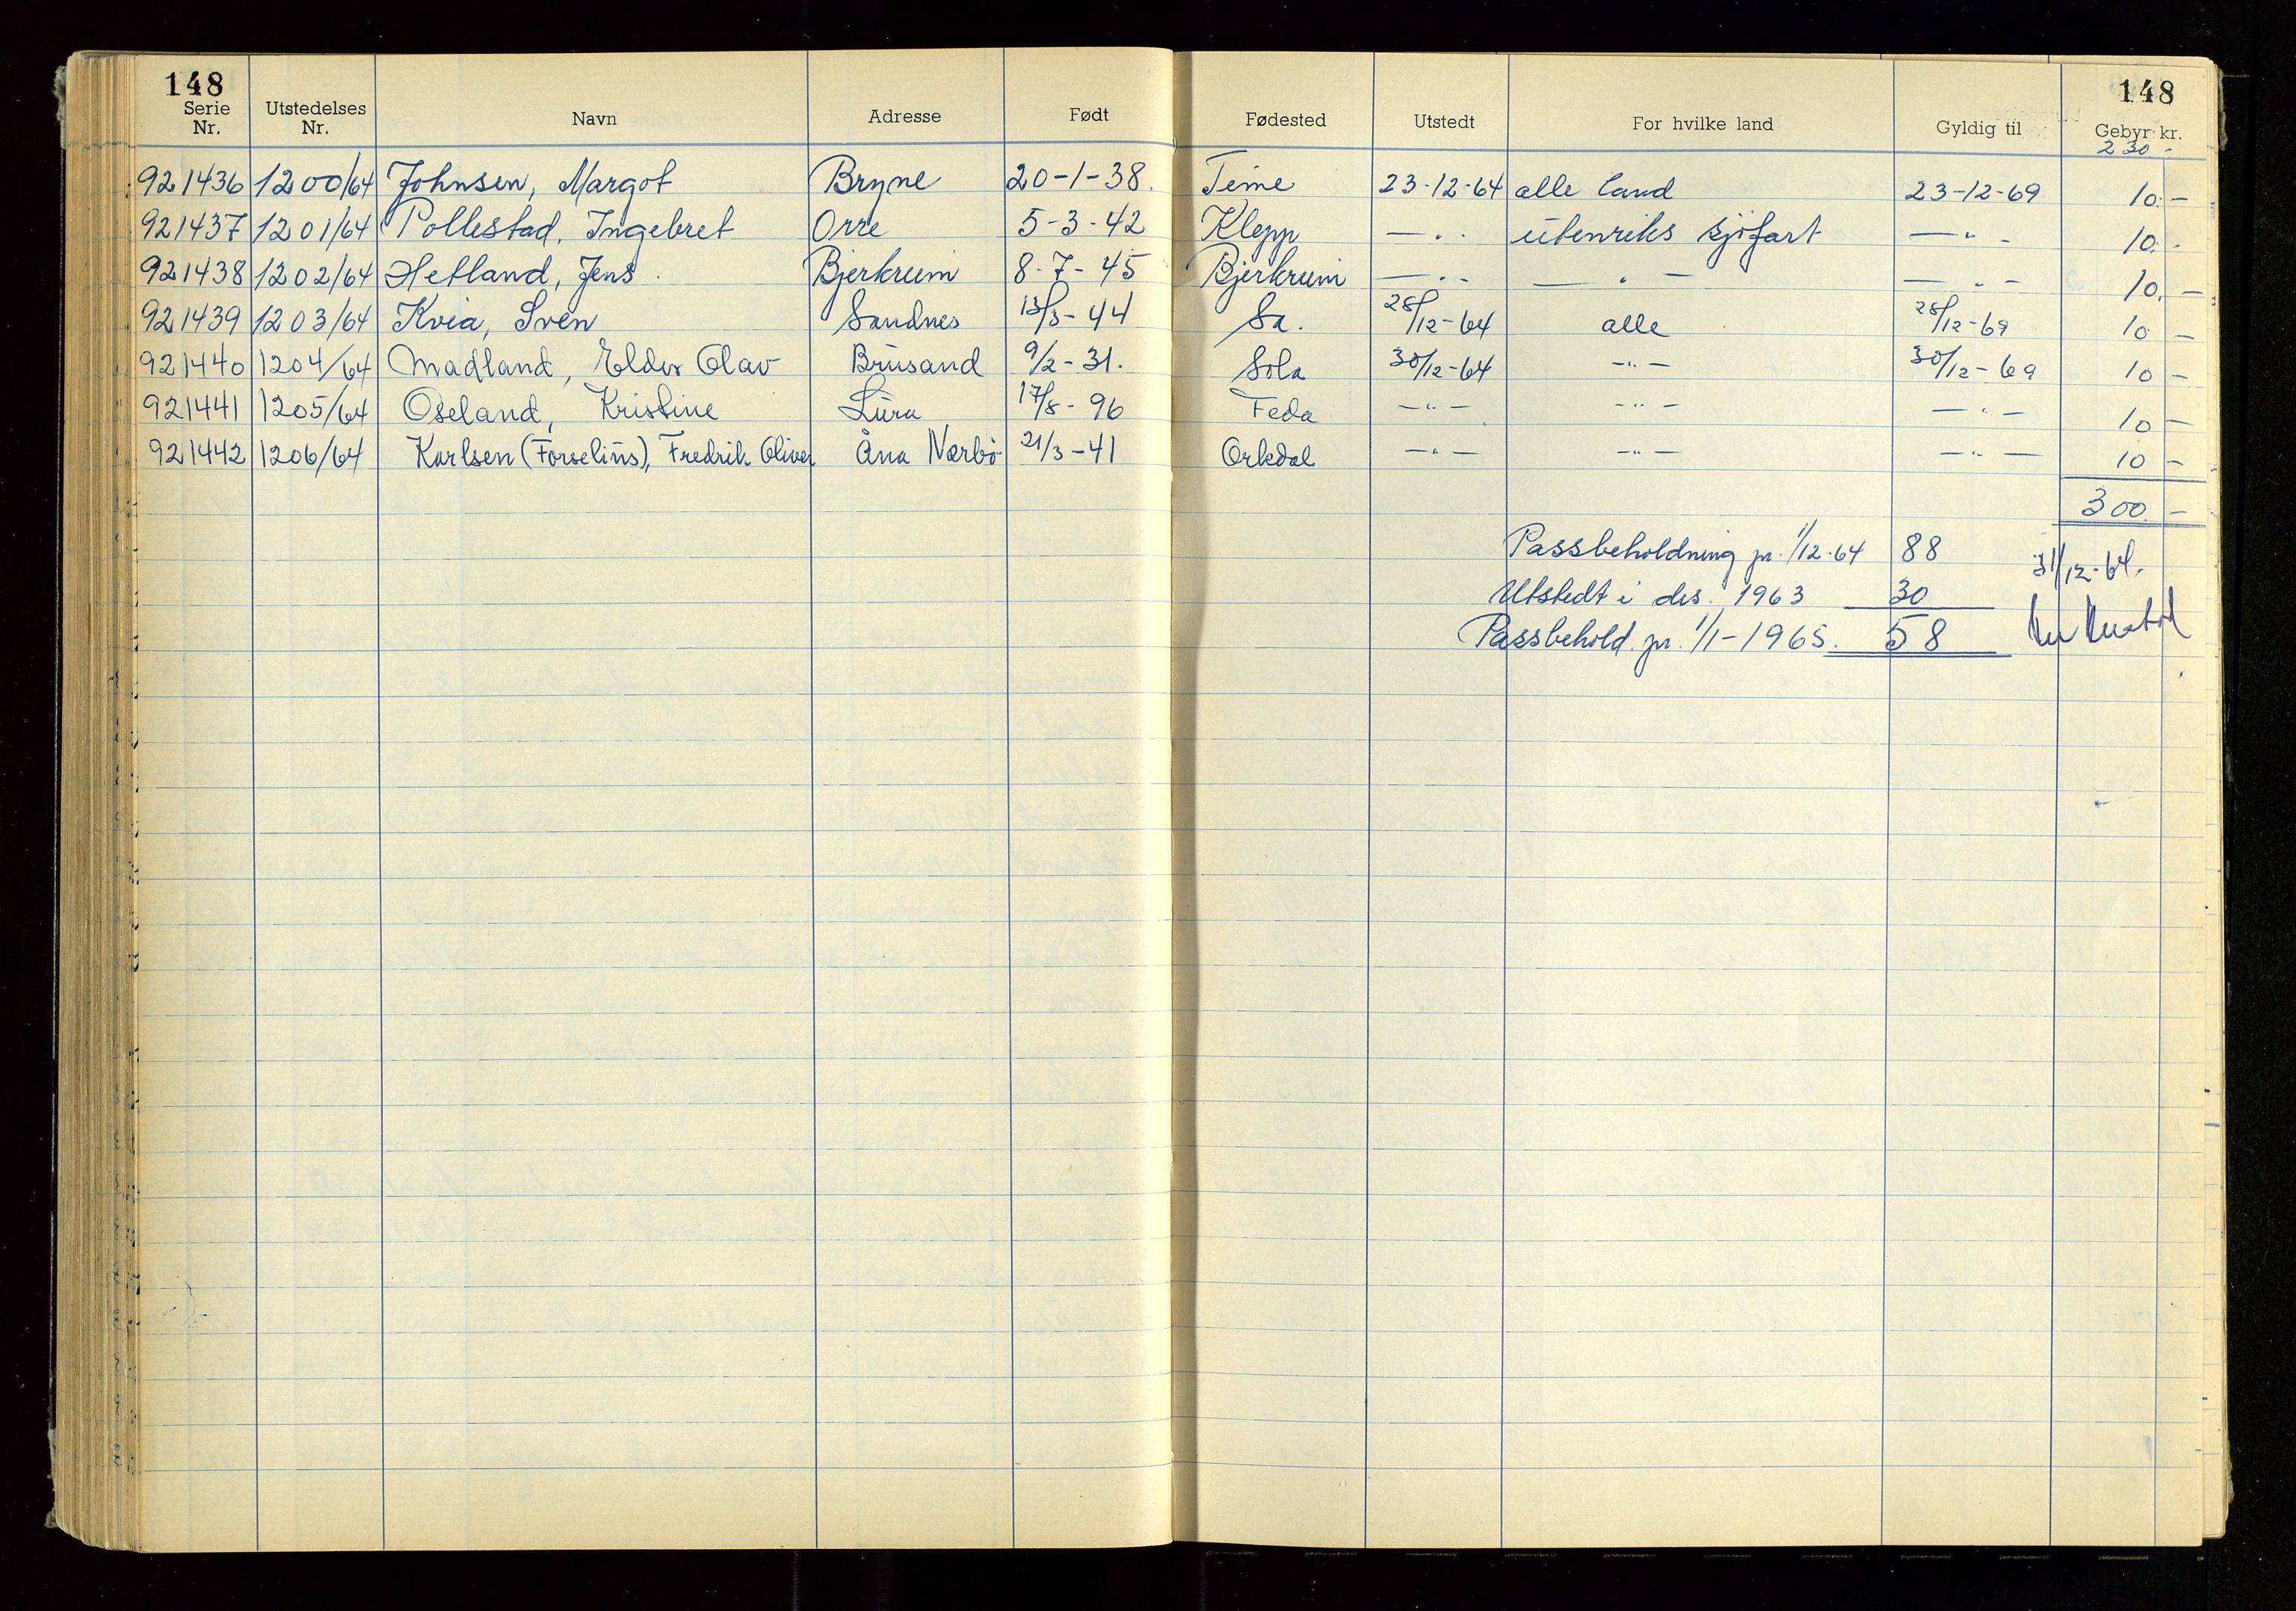 148 148
Serie Nr. Utstedelses Nr. Navn Adresse Født Fødested Utstedt For hvilke land Gyldig til Gebyr kr.
230 -
921436 1200/64 Johnsen, Margot Bryne 20-1-38. Time 23-12-64 alle land 23-12-69 10.-
921437 1201/64 Pollestad, Ingebret Orre 5-3-42 Klepp —"- utenriks sjøfart —"- 10.-
921438 1202/64 Hetland, Jens. Bjerkreim 8-7-45 Bjerkreim —"- —"— —"- 10.-
921439 1203/64 Kvia, Sven Sandnes 13/3-44 Sa. 28/12-64 alle 28/12-69 10 -
921440 1204/64 Madland, Olav Brusand 9/2-31. Sola 30/12-64 -"- 30/12-69 10 -
921441 1205/64 Oseland, Kristine Lura 17/8-96 Feda -"- -"- -"- 10 -
921442 1206/64 Karlsen (Forselius), Fredrik Oliver Åna Nærbö 21/3-41 Orkdal -"- -"- -"- 10 -
300 -
Passbeholdning pr. 1/12-64 88 31/12-64.
Utstedt i des. 1963 30
Passbehold. pr. 1/1-1965. 58